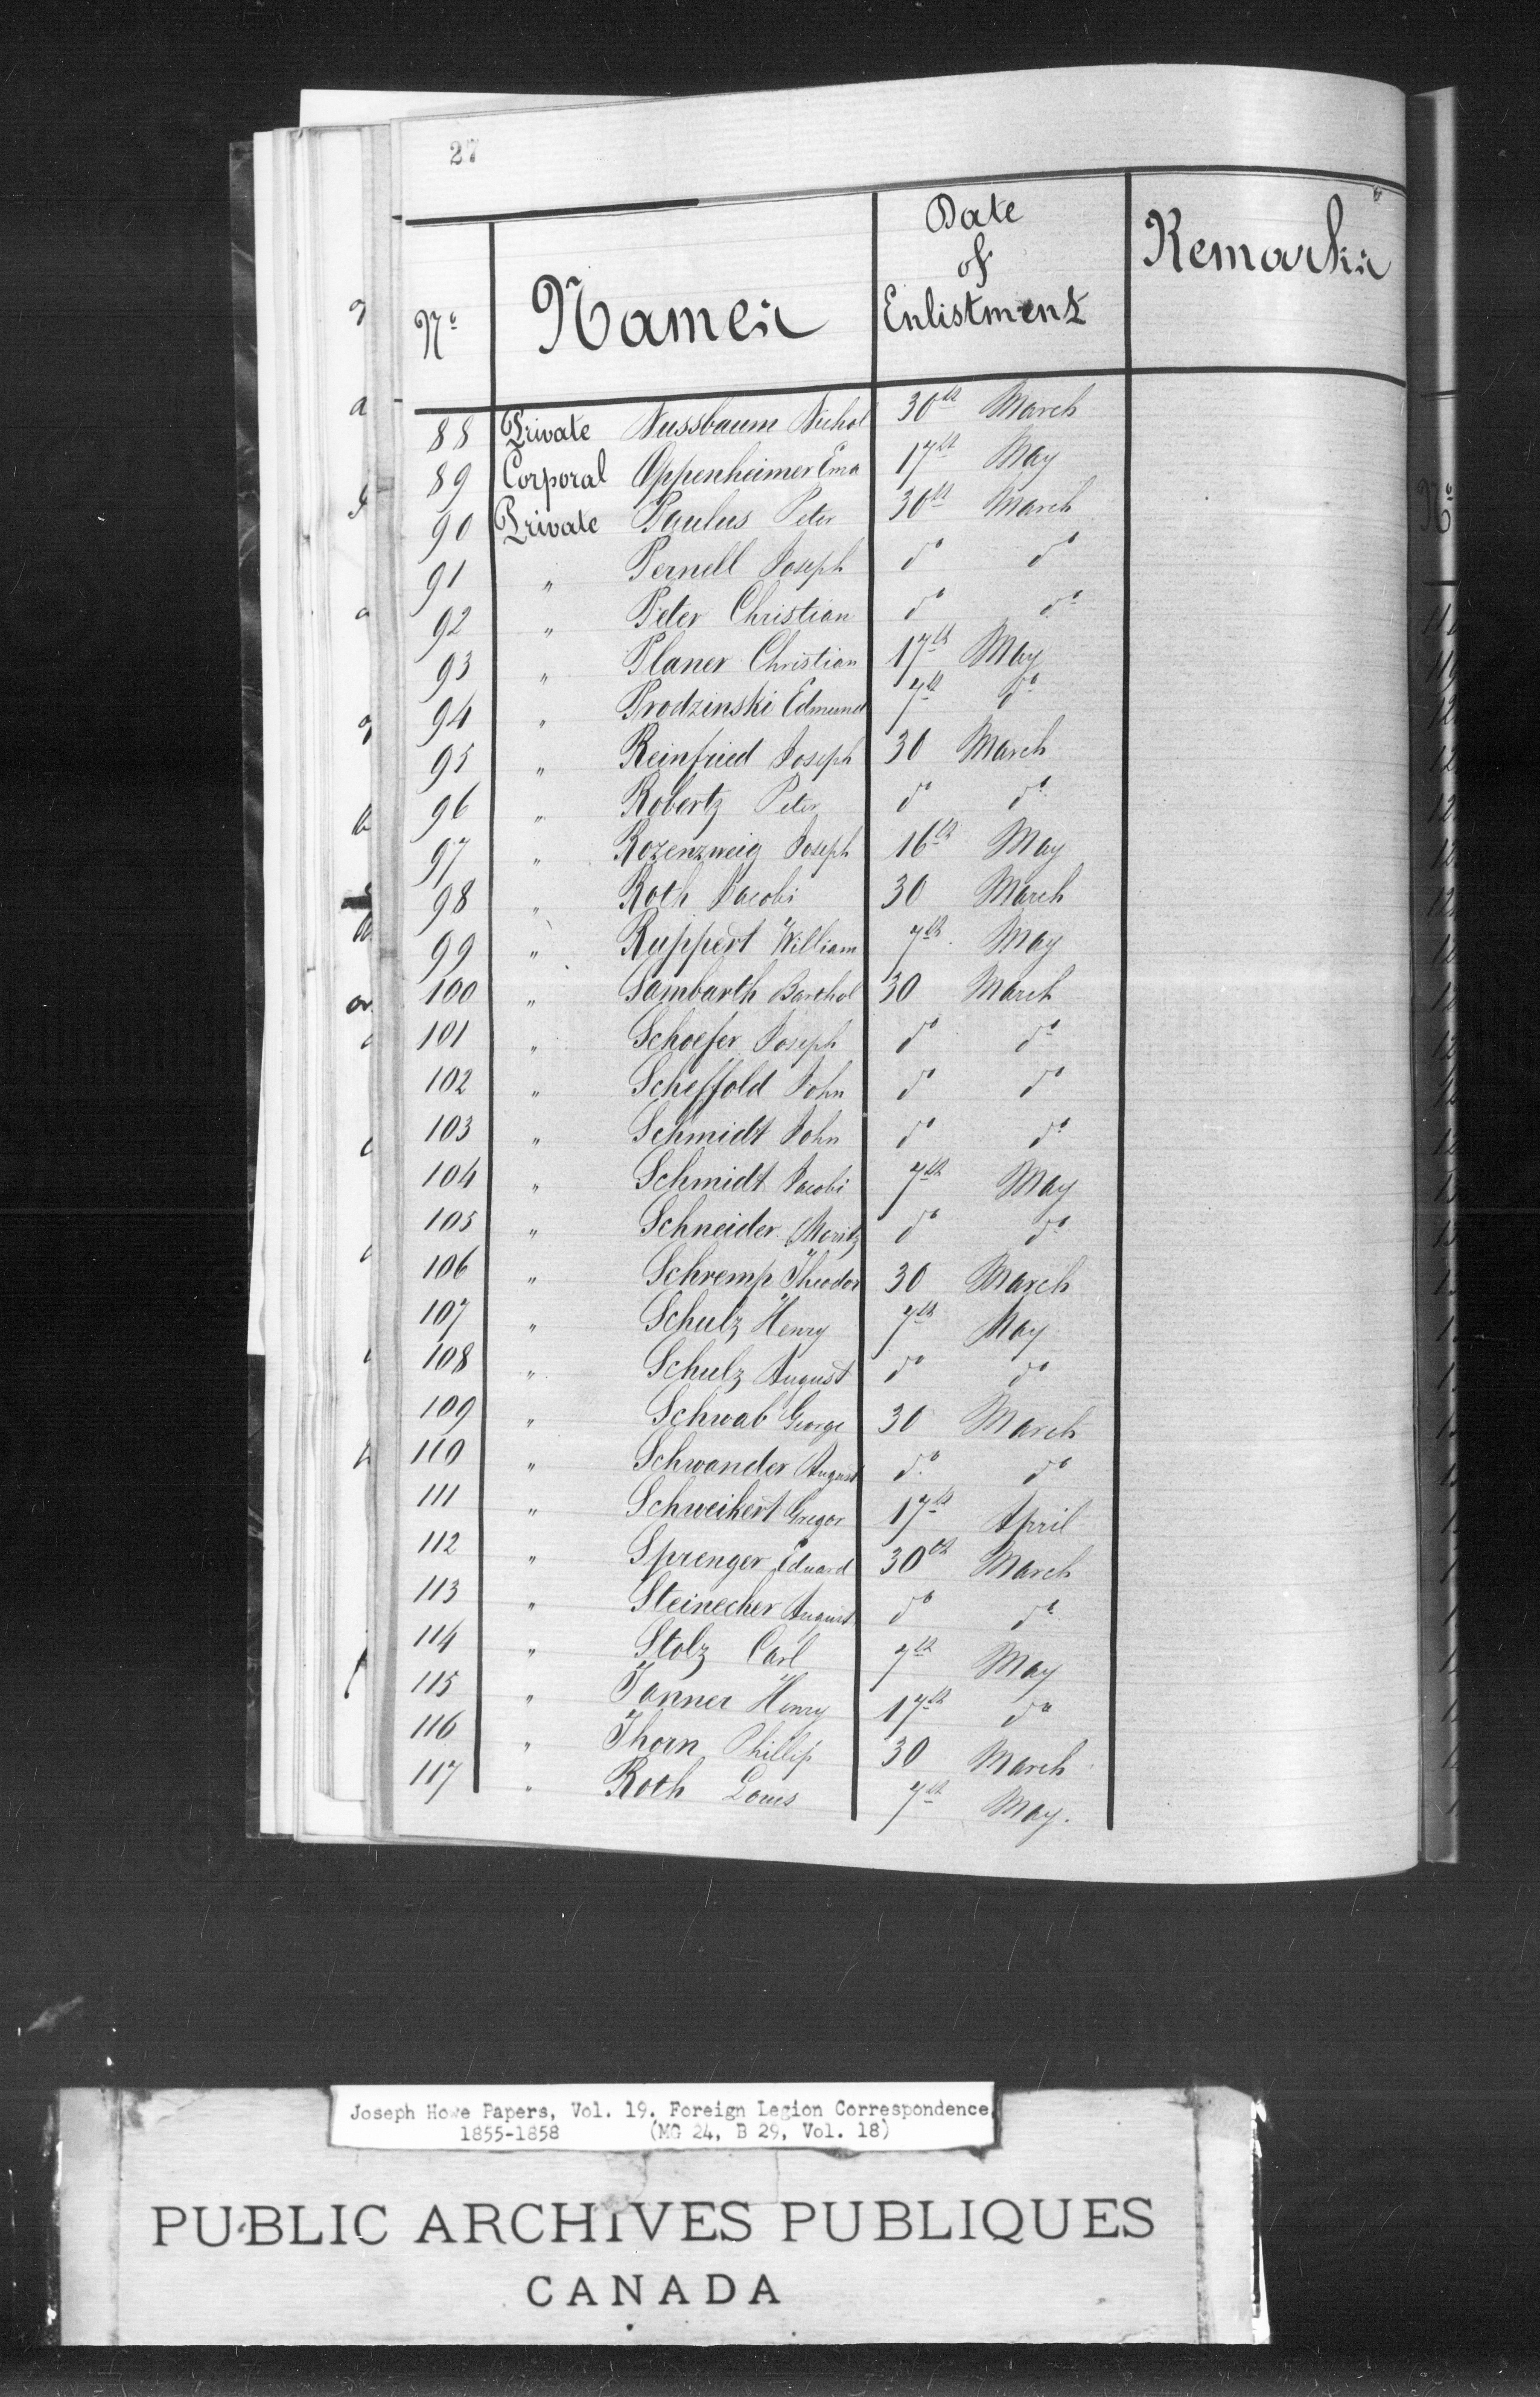 27
Nº Names Date of Enlistment Remarks
88 Private Nussbaum Nichol 30th March
89 Corporal Oppenheimer Ema 17th May
90 Private Paulus Peter 30th March
91 " Pernell Joseph do do
92 " Peter Christian do do
93 " Planer Christian 17th May
94 " Prodzinski Edmund 7th do
95 " Reinfried Joseph 30 March
96 " Robertz Peter do do
97 " Rozenzweig Joseph 16th May
98 " Roth Jacob 30 March
99 " Ruppert William 7th May
100 " Sambarth Barthol 30 March
101 " Schoefer Joseph do do
102 " Scheffold John do do
103 " Schmidt John do do
104 " Schmidt Jacob 7th May
105 " Schneider Moritz do do
106 " Schremp Theodor 30 March
107 " Schulz Henry 7th May
108 " Schulz August do do
109 " Schwab George 30 March
110 " Schwander August do do
111 " Schweikert Gregor 17th April
112 " Sprenger Eduard 30th March
113 " Steinecher August do do
114 " Stolz Carl 7th May
115 " Tanner Henry 17th do
116 " Thorn Phillip 30 March
117 " Roth Louis 7th May.
Joseph Howe Papers, Vol. 19. Foreign Legion Correspondence,
1855-1858 (MG 24, B 29, Vol. 18)
PUBLIC ARCHIVES PUBLIQUES
CANADA